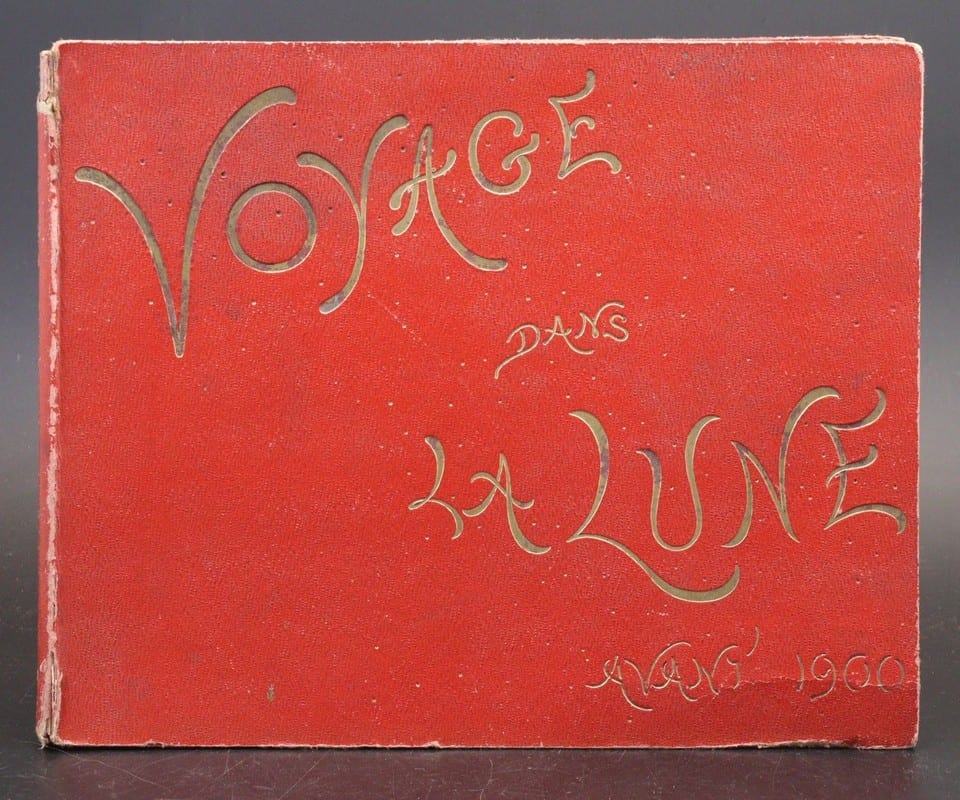 VOYAGE
DANS
LA LUNE
AVANT 1900